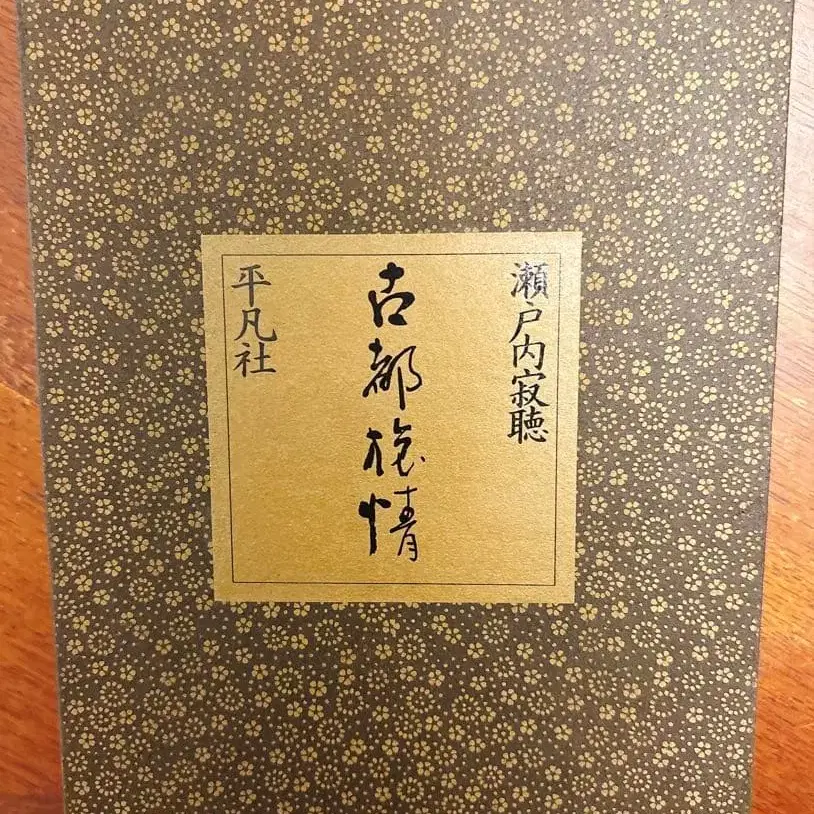 瀬戸内寂聴
古都旅情
平凡社